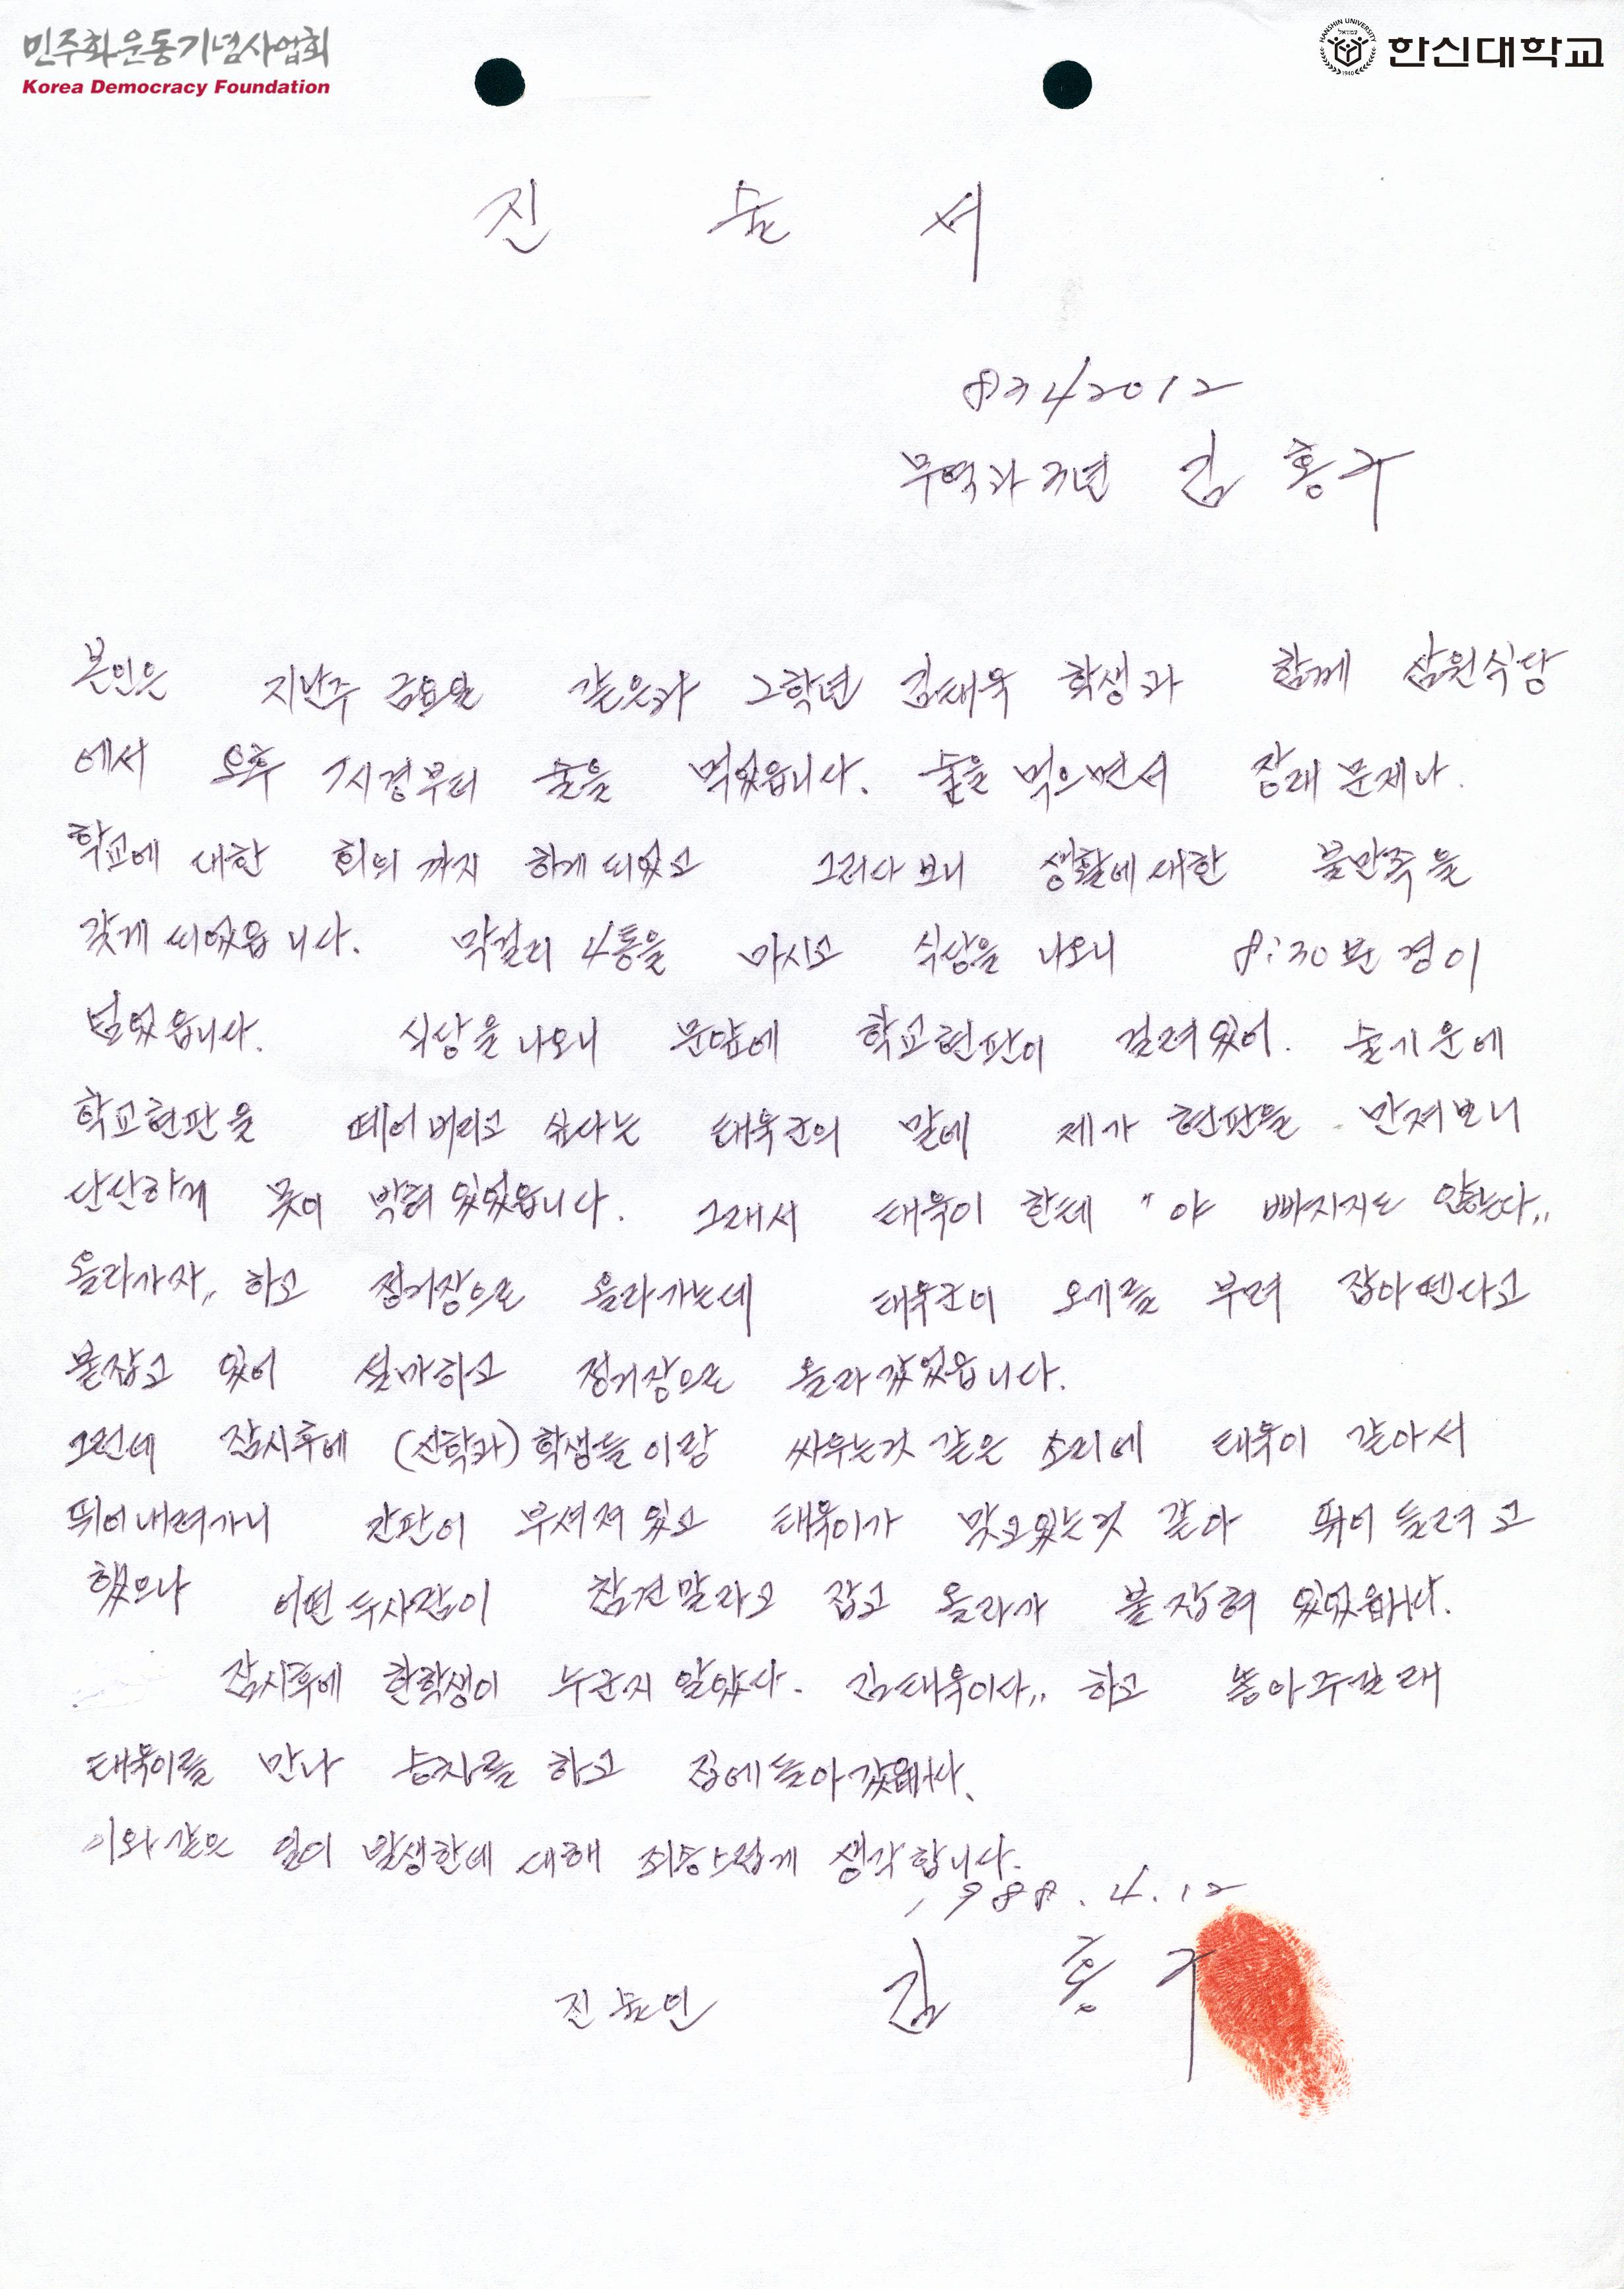 민주화운동기념사업회
Korea Democracy Foundation
한신대학교
진 술 서
8342012
무역과 3년 김 홍 구
본인은 지난주 금요일 같은과 2학년 김태욱 학생과 함께 삼원식당
에서 오후 7시경부터 술을 먹었읍니다. 술을 먹으면서 장래 문제나.
학교에 대한 회의 까지 하게 되었고 그러다 보니 생활에 대한 불만족을
갖게 되었읍니다. 막걸리 4통을 마시고 식당을 나오니 8:30분경이
넘었읍니다. 식당을 나오니 문앞에 학교현판이 걸려있어. 술기운에
학교현판을 떼어 버리고 싶다는 태욱군의 말에 제가 현판을 만져보니
단단하게 못이 박혀 있었읍니다. 그래서 태욱이 한테 "야 빠지지도 않는다,,
올라가자,, 하고 정거장으로 올라가는데 태욱군이 오기를 부려 잡아뗀다고
붙잡고 있어 설마하고 정거장으로 올라갔었읍니다.
그런데 잠시후에 (신학과) 학생들이랑 싸우는것 같은 소리에 태욱이 같아서
뛰어내려가니 간판이 부셔져 있고 태욱이가 맞고있는것 같아 뛰어 들려고
했으나 어떤 두사람이 참견말라고 잡고 올라가 붙잡혀 있었읍니다.
잠시후에 한학생이 누군지 알았다. 김태욱이다,, 하고 놓아주길래
태욱이를 만나 승차를 하고 집에돌아갔읍니다.
이와같은 일이 발생한데 대해 죄송스럽게 생각합니다.
1988. 4. 12
진술인 김 홍 구